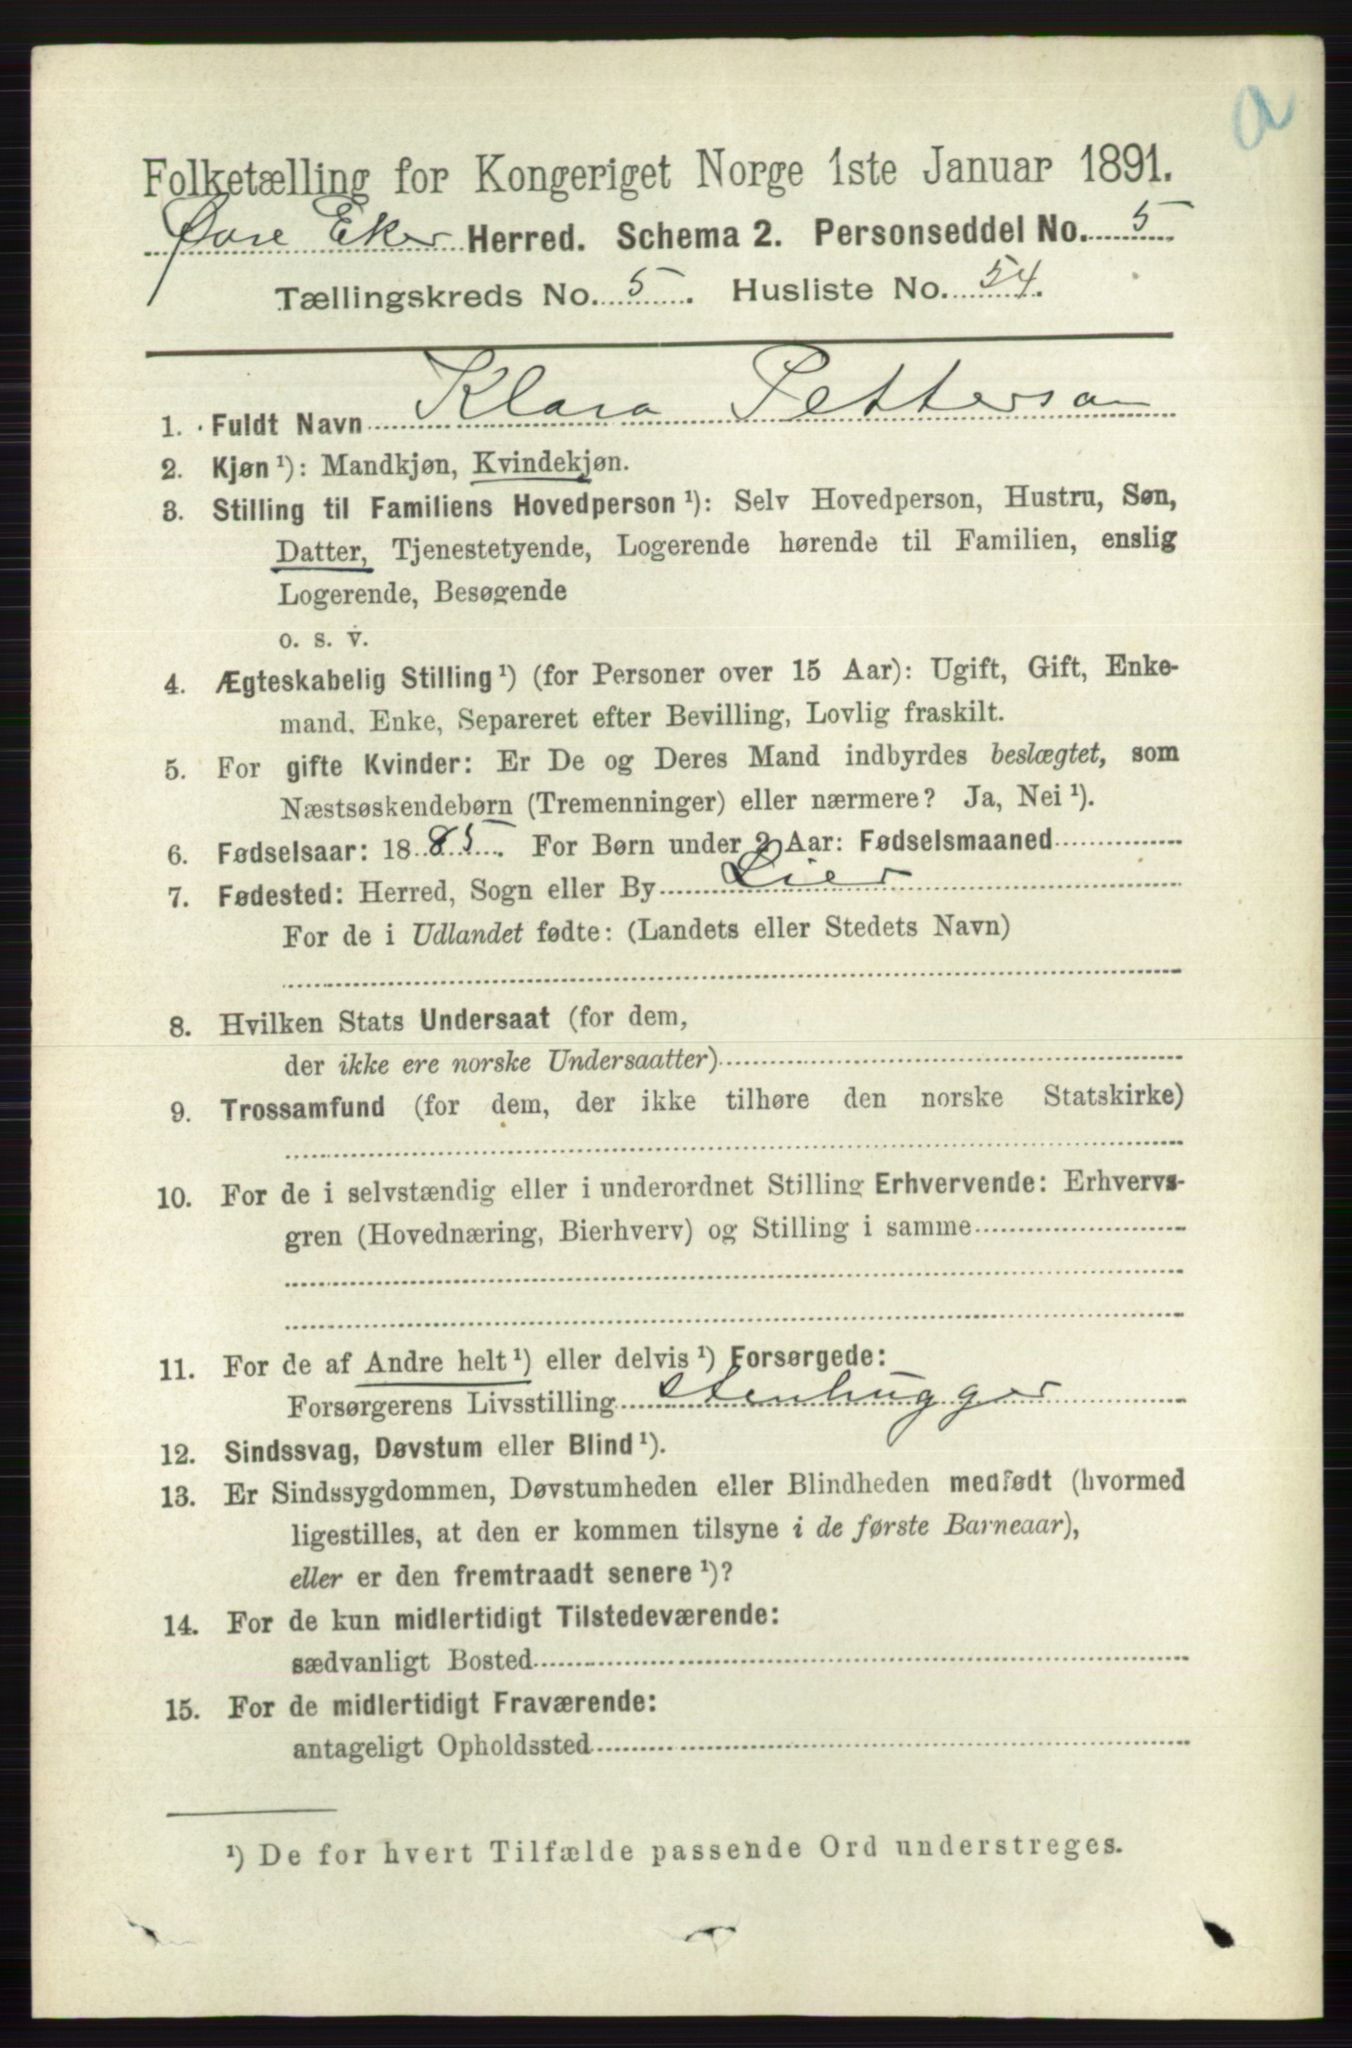 a
Folketælling for Kongeriget Norge 1ste Januar 1891.
Øvre Eker Herred. Schema 2. Personseddel No. 5
Tællingskreds No. 5. Husliste No. 54.
1. Fuldt Navn Klara Petterson
2. Kjøn ¹): Mandkjøn, Kvindekjøn.
3. Stilling til Familiens Hovedperson ¹): Selv Hovedperson, Hustru, Søn,
Datter, Tjenestetyende, Logerende hørende til Familien, enslig
Logerende, Besøgende
o. s. v.
4. Ægteskabelig Stilling ¹) (for Personer over 15 Aar): Ugift, Gift, Enke-
mand, Enke, Separeret efter Bevilling, Lovlig fraskilt.
5. For gifte Kvinder: Er De og Deres Mand indbyrdes beslægtet, som
Næstsøskendebørn (Tremenninger) eller nærmere? Ja, Nei ¹).
6. Fødselsaar: 1885. For Børn under 2 Aar: Fødselsmaaned
7. Fødested: Herred, Sogn eller By Lier
For de i Udlandet fødte: (Landets eller Stedets Navn)
8. Hvilken Stats Undersaat (for dem,
der ikke ere norske Undersaatter)
9. Trossamfund (for dem, der ikke tilhøre den norske Statskirke)
10. For de i selvstændig eller i underordnet Stilling Erhvervende: Erhvervs-
gren (Hovednæring, Bierhverv) og Stilling i samme
11. For de af Andre helt ¹) eller delvis ¹) Forsørgede:
Forsørgerens Livsstilling Stenhugger
12. Sindssvag, Døvstum eller Blind ¹).
13. Er Sindssygdommen, Døvstumheden eller Blindheden medfødt (hvormed
ligestilles, at den er kommen tilsyne i de første Barneaar),
eller er den fremtraadt senere ¹)?
14. For de kun midlertidigt Tilstedeværende:
sædvanligt Bosted
15. For de midlertidigt Fraværende:
antageligt Opholdssted
¹) De for hvert Tilfælde passende Ord understreges.